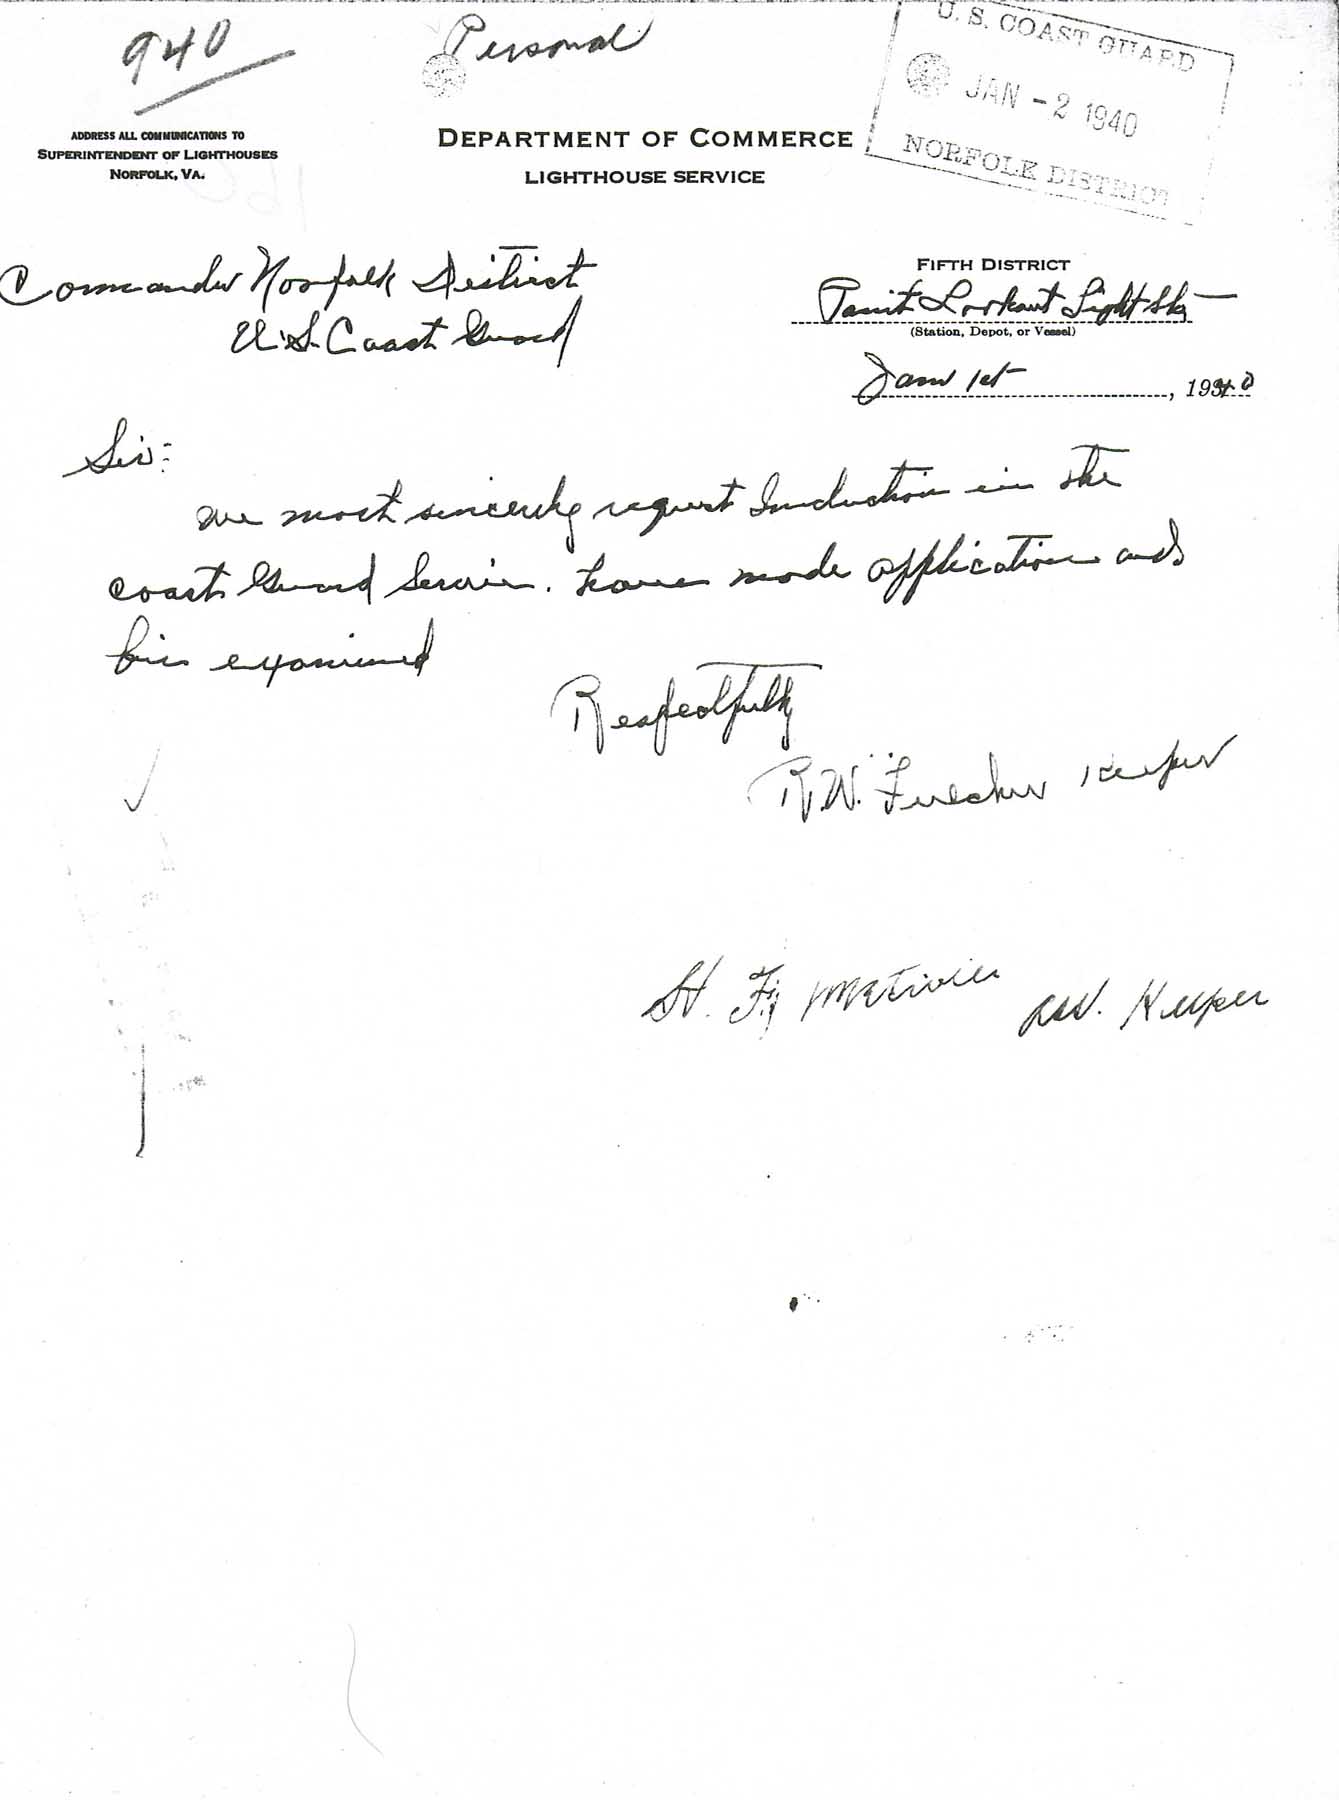 940
Personal
U. S. COAST GUARD
JAN - 2 1940
NORFOLK DISTRICT
ADDRESS ALL COMMUNICATIONS TO
SUPERINTENDENT OF LIGHTHOUSES
NORFOLK, VA.
DEPARTMENT OF COMMERCE
LIGHTHOUSE SERVICE
Commander Norfolk District
U.S. Coast Guard
FIFTH DISTRICT
Point Lookout Light Sta
(Station, Depot, or Vessel)
Jan 1st, 1940
Sir:
We most sincerely request Induction in the
coast Guard Service. have made application and
bin examined
Respectfully
R.W. Keeper
H. F. Keeper